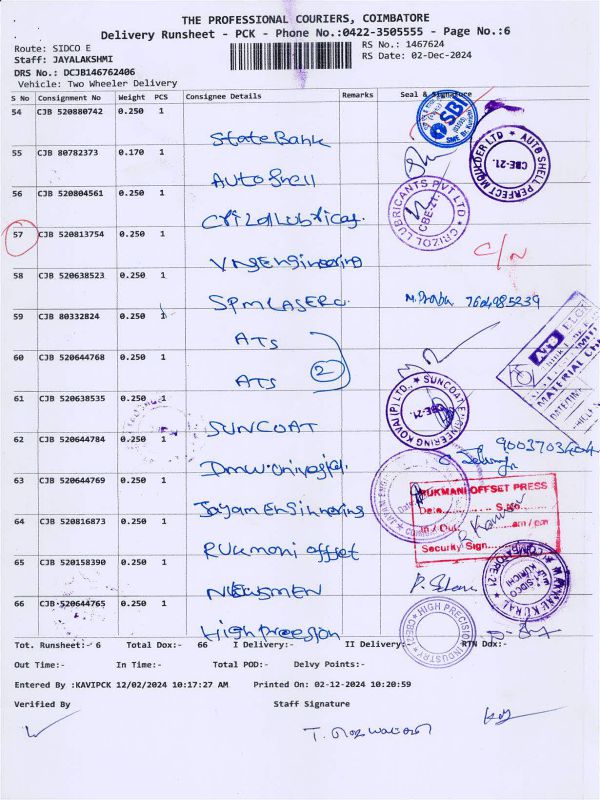 THE PROFESSIONAL COURIERS, COIMBATORE
Delivery Runsheet - PCK - Phone No.:0422-3505555 - Page No.:6
Route: SIDCO E
RS No.: 1467624
Staff: JAYALAKSHMI
RS Date: 02-Dec-2024
DRS No.: DCJB146762406
Vehicle: Two Wheeler Delivery
S No Consignment No Weight PCS Consignee Details Remarks Seal & Signature
54 CJB 520880742 0.250 1
State Bank
SBI
55 CJB 80782373 0.170 1
Auto Shell
AUTO SHELL PERFECT MOULDER LTD
CBE-21.
56 CJB 520804561 0.250 1
Crizol Lubricas.
CRIZOL LUBRICANTS PVT LTD
CBE-21
57 CJB 520813754 0.250 1
VNS Engineering
C/N
58 CJB 520638523 0.250 1
SPM LASERC
7604985239
59 CJB 80332824 0.250 1
ATS
60 CJB 520644768 0.250 1
ATS
2
MATERIAL
61 CJB 520638535 0.250 1
SUNCOAT
CBE-21.
62 CJB 520644784 0.250 1
63 CJB 520644769 0.250 1
Jayam Engineering
RUKMANI OFFSET PRESS
Date S.No.
In / Out: am / pm
Security Sign.
64 CJB 520816873 0.250 1
Rukmoni offset
65 CJB 520158390 0.250 1
NEWSMEN
66 CJB 520644765 0.250 1
High Precesion
HIGH PRECISION INDUSTRY
Tot. Runsheet:- 6 Total Dox:- 66 I Delivery:- II Delivery:- RTN Dox:-
Out Time:- In Time:- Total POD:- Delvy Points:-
Entered By :KAVIPCK 12/02/2024 10:17:27 AM Printed On: 02-12-2024 10:20:59
Verified By Staff Signature